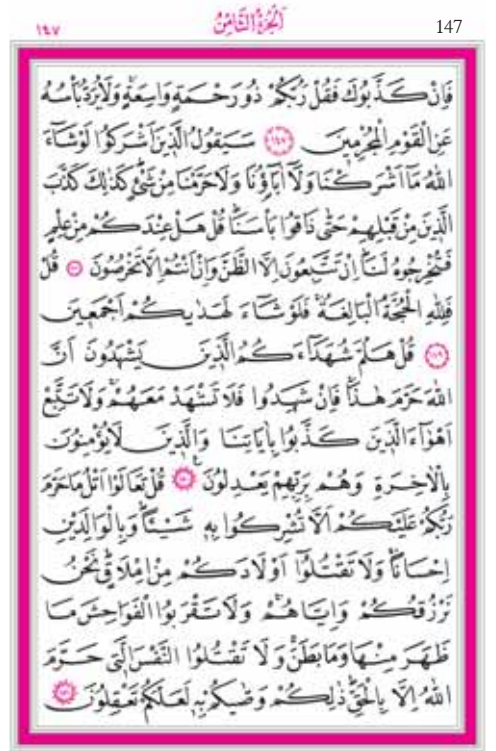 ١٤٧ اَلْجُزْءُ الثَّامِنُ 147
فَاِنْ كَذَّبُوكَ فَقُلْ رَبُّكُمْ ذُو رَحْمَةٍ وَاسِعَةٍۚ وَلَا يُرَدُّ بَأْسُهُ
عَنِ الْقَوْمِ الْمُجْرِمٖينَ ﴿١٤٧﴾ سَيَقُولُ الَّذٖينَ اَشْرَكُوا لَوْ شَٓاءَ
اللّٰهُ مَٓا اَشْرَكْنَا وَلَٓا اٰبَٓاؤُ۬نَا وَلَا حَرَّمْنَا مِنْ شَيْءٍؕ كَذٰلِكَ كَذَّبَ
الَّذٖينَ مِنْ قَبْلِهِمْ حَتّٰى ذَاقُوا بَأْسَنَاؕ قُلْ هَلْ عِنْدَكُمْ مِنْ عِلْمٍ
فَتُخْرِجُوهُ لَنَاؕ اِنْ تَتَّبِعُونَ اِلَّا الظَّنَّ وَاِنْ اَنْتُمْ اِلَّا تَخْرُصُونَ ﴿١٤٨﴾ قُلْ
فَلِلّٰهِ الْحُجَّةُ الْبَالِغَةُۚ فَلَوْ شَٓاءَ لَهَدٰيكُمْ اَجْمَعٖينَ
﴿١٤٩﴾ قُلْ هَلُمَّ شُهَدَٓاءَكُمُ الَّذٖينَ يَشْهَدُونَ اَنَّ
اللّٰهَ حَرَّمَ هٰذَاۚ فَاِنْ شَهِدُوا فَلَا تَشْهَدْ مَعَهُمْۚ وَلَا تَتَّبِعْ
اَهْوَٓاءَ الَّذٖينَ كَذَّبُوا بِاٰيَاتِنَا وَالَّذٖينَ لَا يُؤْمِنُونَ
بِالْاٰخِرَةِ وَهُمْ بِرَبِّهِمْ يَعْدِلُونَ ﴿١٥٠﴾ قُلْ تَعَالَوْا اَتْلُ مَا حَرَّمَ
رَبُّكُمْ عَلَيْكُمْ اَلَّا تُشْرِكُوا بِهٖ شَيْـًٔا وَبِالْوَالِدَيْنِ
اِحْسَانًاۚ وَلَا تَقْتُلُٓوا اَوْلَادَكُمْ مِنْ اِمْلَاقٍؕ نَحْنُ
نَرْزُقُكُمْ وَاِيَّاهُمْۚ وَلَا تَقْرَبُوا الْفَوَاحِشَ مَا
ظَهَرَ مِنْهَا وَمَا بَطَنَۚ وَلَا تَقْتُلُوا النَّفْسَ الَّتٖي حَرَّمَ
اللّٰهُ اِلَّا بِالْحَقِّؕ ذٰلِكُمْ وَصّٰيكُمْ بِهٖ لَعَلَّكُمْ تَعْقِلُونَ ﴿١٥١﴾